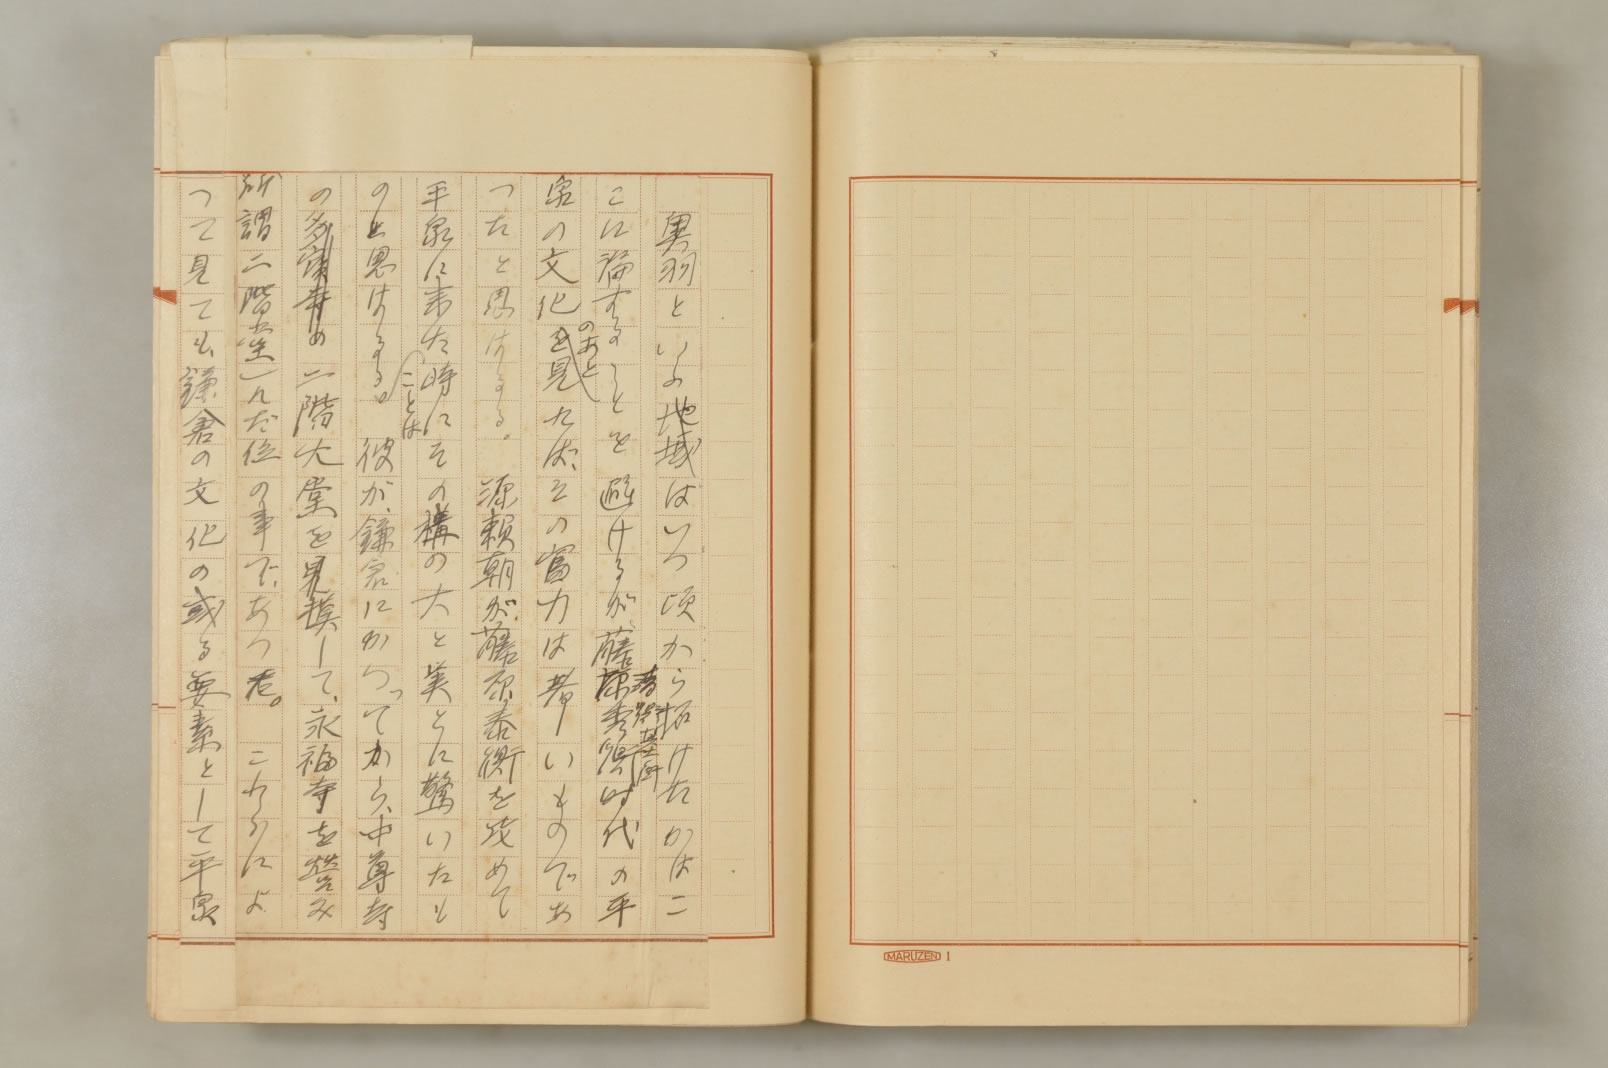 奥羽といふ地域はいつ頃から拓けたかはこ
こに論することを避けるが藤原清衡基衡秀衡時代の平
泉の文化のあとを見れば、その富力は著しいものであ
つたと思はれる。源頼朝が藤原泰衡を攻めて
平泉に来た時にその構の大と美とに驚いたも
ことは
のと思はれる。彼が、鎌倉にかへつてから、中尊寺
の二階大堂を見模して、永福寺を営み
所謂二階堂)んだ位の事であつた。これらによ
つて見ても鎌倉の文化の或る要素として平泉
MARUZEN 1